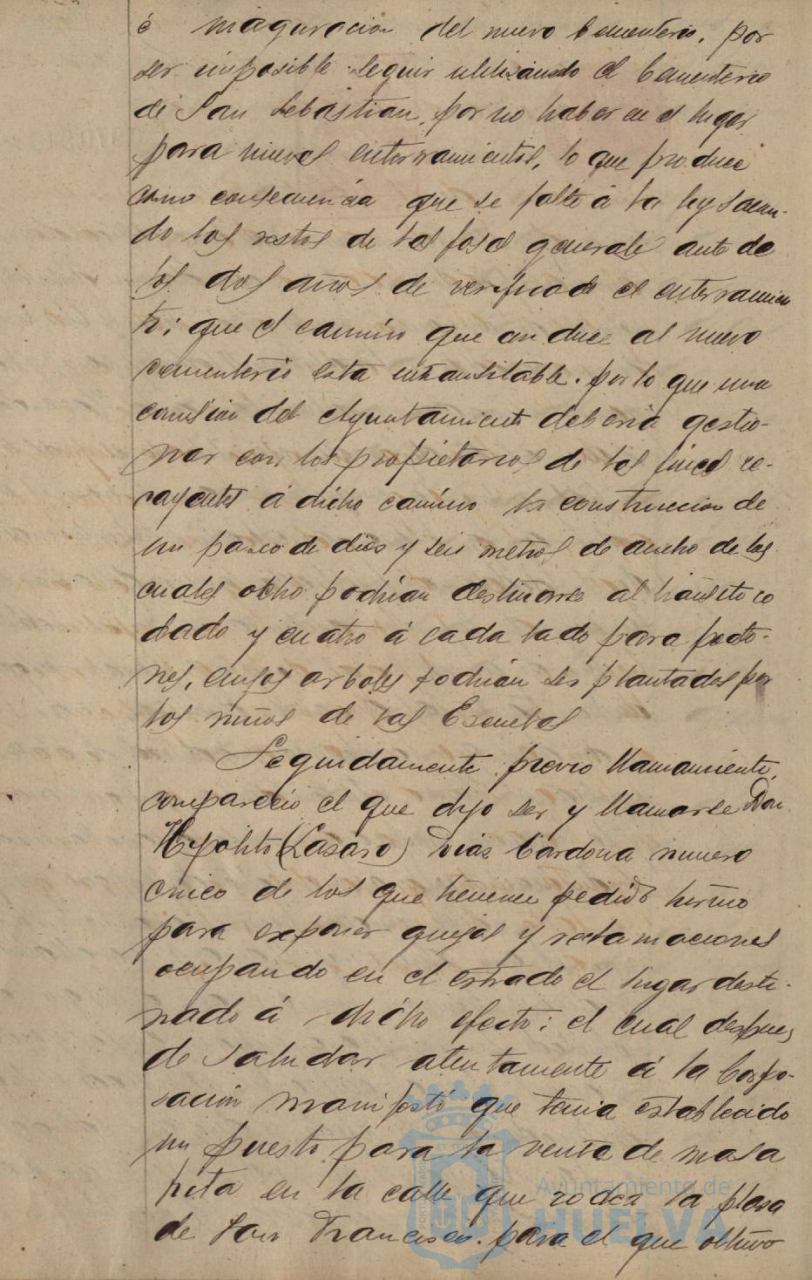 é inaguracion del nuevo Cementerio, por
ser imposible seguir utilizando el Cementerio
de San Sebastian, por no haber en el lugar
para nuevos enterramientos, lo que produce
como consecuencia que se falte á la ley sacan-
do los restos de las fosas generales ante de
los dos años de verificado el enterramien
to; que el camino que conduce al nuevo
cementerio esta intransitable. por lo que una
comision del Ayuntamiento deberia gestio-
nar con los propietarios de las fincas re-
cayentes á dicho camino la construccion de
un paseo de dies y seis metros de ancho de los
cuales ocho podrian destinarse al transito ro
dado y cuatro á cada lado para peato-
nes, cuyos arboles podrian ser plantados por
los niños de las Escuelas
Seguidamente previo llamamiento,
comparecio el que dijo ser y llamarse Don
Hipolito (Lasaro) Dias Cardona numero
cinco de los que tienene pedido turno
para exponer quejas y reclamaciones
ocupando en el estrado el lugar desti-
nado á dicho efecto; el cual despues
de saludar atentamente á la Corpo-
racion manifestó que tenia establecido
un puesto para la venta de masa
frita en la calle que rodea la plasa
de San Francisco. para el que obtuvo
Ayuntamiento de
HUELVA